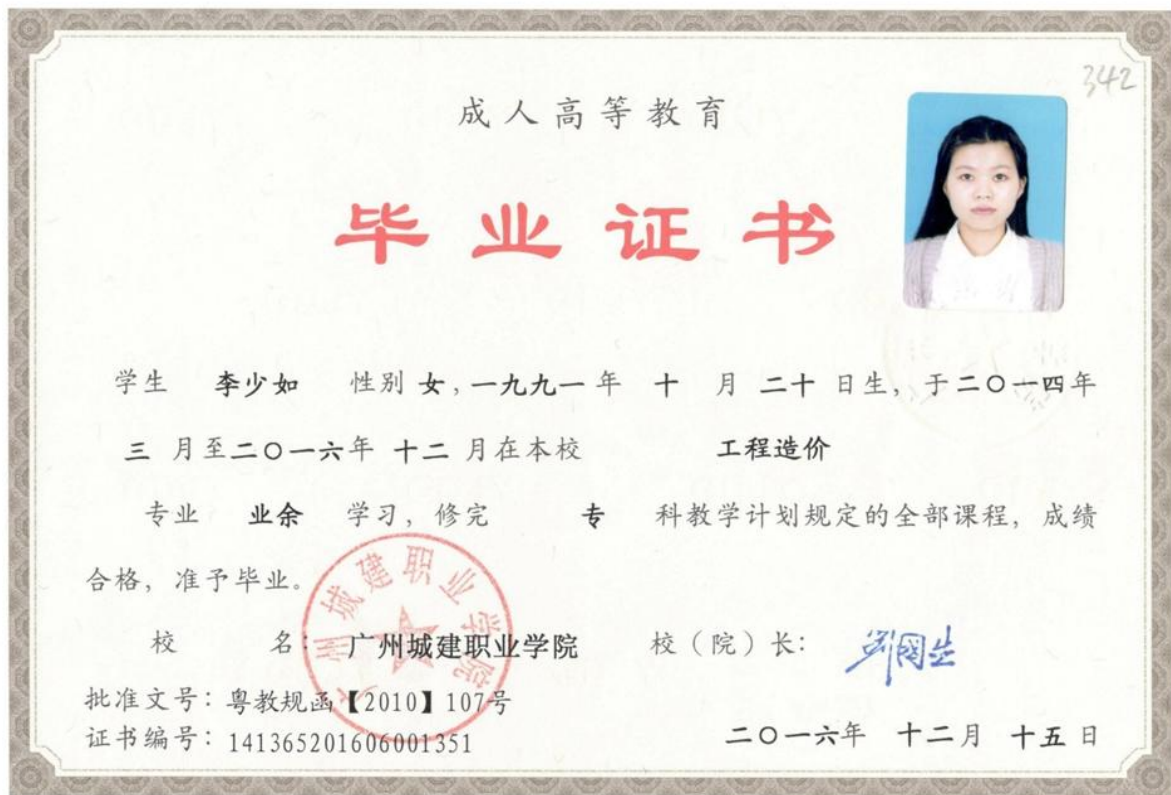 342
成人高等教育
毕业证书
学生 李少如 性别 女，一九九一 年 十 月 二十 日生，于二〇一四年
三 月至二〇一六年 十二 月在本校 工程造价
专业 业余 学习，修完 专 科教学计划规定的全部课程，成绩
合格，准予毕业。
校 名：广州城建职业学院 校（院）长：
广州城建职业学院
批准文号：粤教规函【2010】107号
证书编号：141365201606001351
二〇一六年 十二月 十五 日